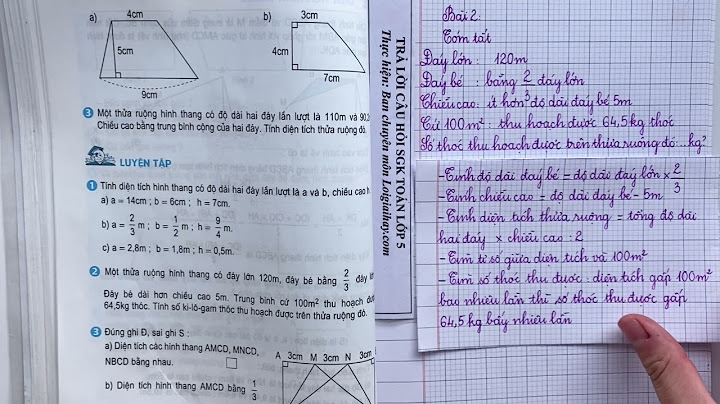 a)
4cm
5cm
9cm
b)
3cm
4cm
7cm
3 Một thửa ruộng hình thang có độ dài hai đáy lần lượt là 110m và 90,2
Chiều cao bằng trung bình cộng của hai đáy. Tính diện tích thửa ruộng đó.
LUYỆN TẬP
1 Tính diện tích hình thang có độ dài hai đáy lần lượt là a và b, chiều cao h
a) a = 14cm ; b = 6cm ; h = 7cm.
b) a = 2/3 m ; b = 1/2 m ; h = 9/4 m.
c) a = 2,8m ; b = 1,8m ; h = 0,5m.
2 Một thửa ruộng hình thang có đáy lớn 120m, đáy bé bằng 2/3 đáy
Đáy bé dài hơn chiều cao 5m. Trung bình cứ 100m² thu hoạch
64,5kg thóc. Tính số ki-lô-gam thóc thu hoạch được trên thửa ruộng đó.
3 Đúng ghi Đ, sai ghi S :
a) Diện tích các hình thang AMCD, MNCD,
NBCD bằng nhau.
b) Diện tích hình thang AMCD bằng 1/3
A 3cm M 3cm N 3cm
TRẢ LỜI CÂU HỎI SGK TOÁN LỚP 5
Thực hiện: Ban chuyên môn Loigiaihay.com
Bài 2:
Tóm tắt
Đáy lớn : 120m
Đáy bé : bằng 2/3 đáy lớn
Chiều cao: ít hơn độ dài đáy bé 5m
Cứ 100m² : thu hoạch được 64,5kg thóc
Số thóc thu hoạch được trên thửa ruộng đó:...kg?
-Tính độ dài đáy bé = độ dài đáy lớn × 2/3
-Tính chiều cao = độ dài đáy bé - 5m
-Tính diện tích thửa ruộng = tổng độ dài
hai đáy × chiều cao : 2
-Tìm tỉ số giữa diện tích và 100m²
-Tìm số thóc thu được : diện tích gấp 100m²
bao nhiêu lần thì số thóc thu được gấp
64,5 kg bấy nhiêu lần